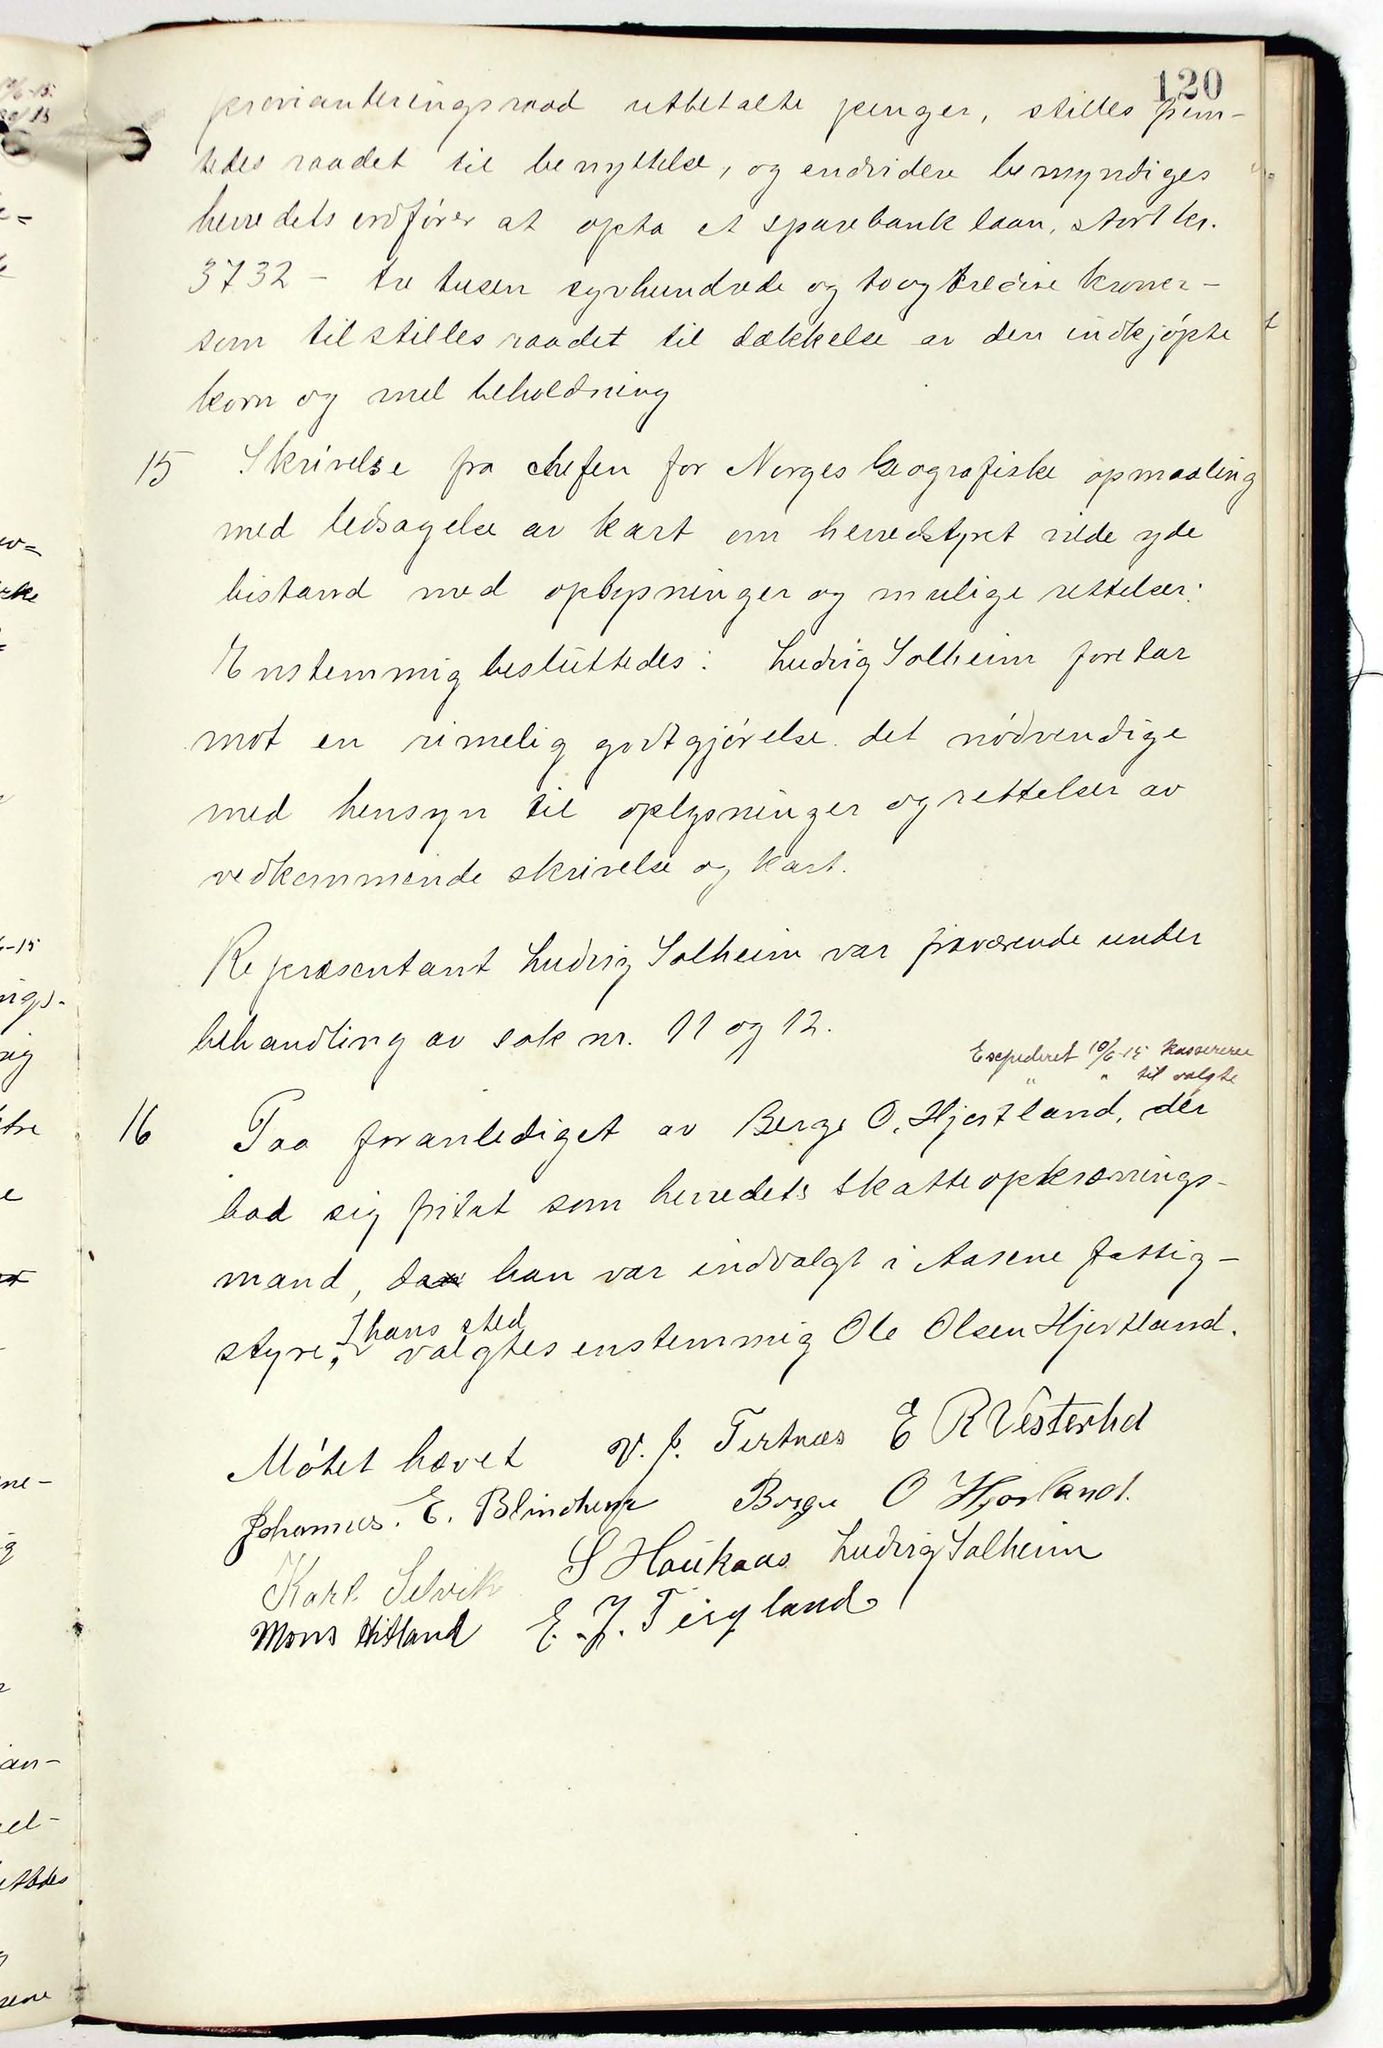 120
provianteringsraad utbetalte penger, stilles frem-
tedes raadet til benyttelse, og endvidere bemyndiges
herredets ordfører at opta et sparebank laan, stort kr.
3732 - tre tusen syvhundrede og to og tredive kroner -
som tilstilles raadet til dækkelse av den indkjøpte
korn og mel beholdning
15 Skrivelse fra chefen for Norges Geografiske opmaaling
med ledsagelse av kart om herredstyret vilde yde
bistand med oplysninger og mulige rettelser:
Enstemmig besluttedes: Ludvig Solheim foretar
mot en rimelig godtgjørelse det nødvendige
med hensyn til oplysninger og rettelser av
vedkommende skrivelse og kart.
Repræsentant Ludvig Solheim var fraværende under
behandling av sak nr. 11 og 12.
Expederet 10/6-15 kassereren
" " til valgte
16 Paa foranlediget av Berge O. Hjortland, der
bad sig fritat som herredets skatteopkrævnings-
mand, da han var indvalgt i Aasene fattig-
styre, I hans sted valgtes enstemmig Ole Olsen Hjortland.
Møtet hævet V. J. Tertnæs E R Vesterlid
Johannes. E. Blindheim Berge O Hjortland.
Karl Selvik S Haukaas Ludvig Solheim
Mons Hitland E. J. Teigland